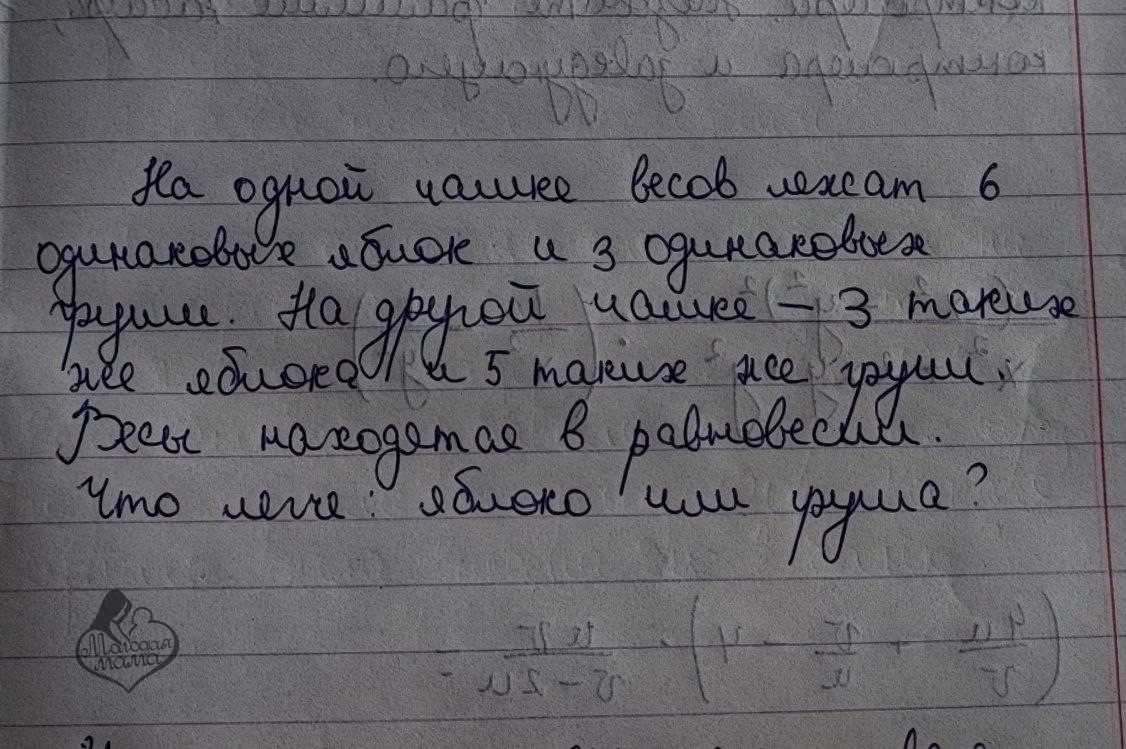 На одной чашке весов лежат 6
одинаковых яблок и 3 одинаковых
груши. На другой чашке – 3 таких
же яблока и 5 таких же груш.
Весы находятся в равновесии.
Что легче: яблоко или груша?
Молодая
мама